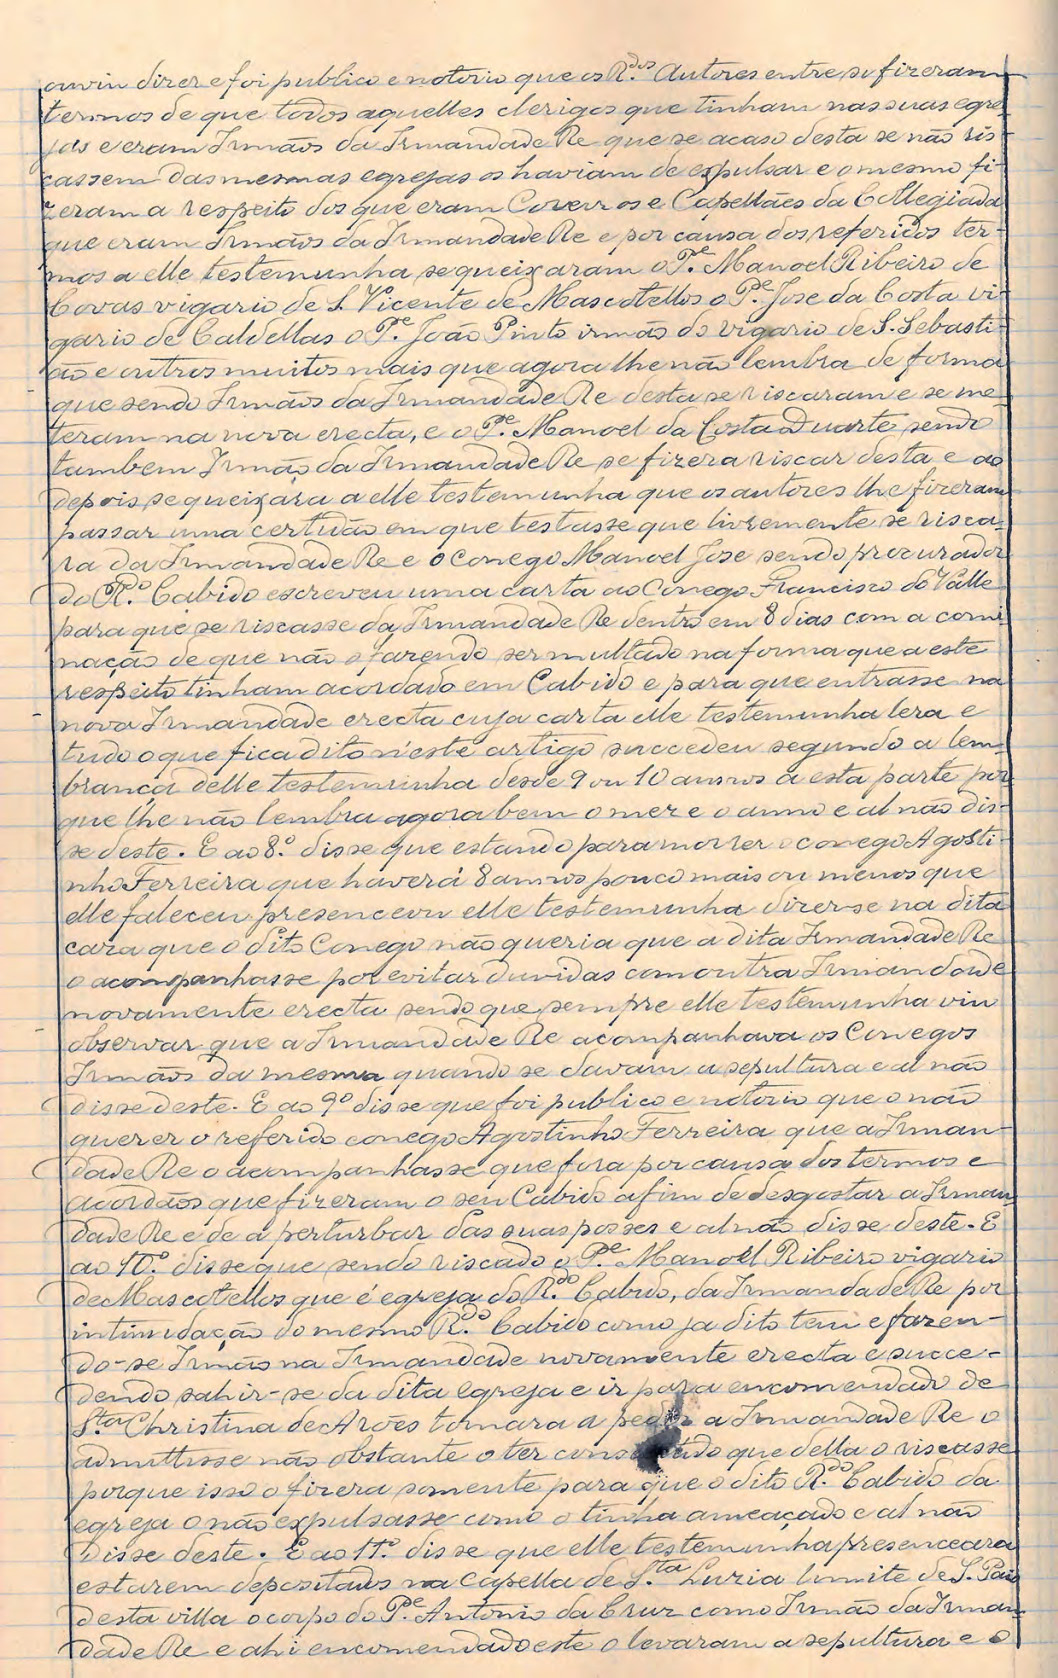 ouviu dizer e foi publico e notorio que os R.dos Autores entre si fizeram
termos de que todos aquelles clerigos que tinham nas suas egre-
jas e eram Irmãos da Irmandade Re que se acaso desta se não ris-
cassem das mesmas egrejas os haviam de expulsar e o mesmo fi-
zeram a respeito dos que eram Coreiros e Capellães da Collegiada
que eram Irmãos da Irmandade Re e por causa dos referidos ter-
mos a elle testemunha se queixaram o P.e Manoel Ribeiro de
Covas vigario de S. Vicente de Mascotellos o P.e Jose da Costa vi-
gario de Caldellas o P.e João Pinto irmão do vigario de S. Sebasti-
ão e outros muitos mais que agora lhe não lembra de forma
que sendo Irmãos da Irmandade Re desta se riscaram e se me-
teram na nova erecta, e o P.e Manoel da Costa Duarte sendo
tambem Irmão da Irmandade Re se fizera riscar desta e ao
depois se queixara a elle testemunha que os autores lhe fizeram
passar uma certidão em que testasse que livremente se risca-
ra da Irmandade Re e o conego Manoel Jose sendo procurador
do R.o Cabido escreveu uma carta ao Conego Francisco do Valle
para que se riscasse da Irmandade Re dentro em 8 dias com a comi-
nação de que não o fazendo ser multado na forma que a este
respeito tinham acordado em Cabido e para que entrasse na
nova Irmandade erecta cuja carta elle testemunha lera e
tudo o que fica dito n'este artigo succedeu segundo a lem-
brança delle testemunha desde 9 ou 10 annos a esta parte por
que lhe não lembra agora bem o mez e o anno e al não dis-
se deste. E ao 8.o disse que estando para morrer o conego Agosti-
nho Ferreira que haverá 8 annos pouco mais ou menos que
elle faleceu presenceou elle testemunha dizer-se na dita
caza que o dito Conego não queria que a dita Irmandade Re
o acompanhasse por evitar duvidas com outra Irmandade
novamente erecta sendo que sempre elle testemunha viu
observar que a Irmandade Re acompanhava os Conegos
Irmãos da mesma quando se davam a sepultura e al não
disse deste. E ao 9o disse que foi publico e notorio que o não
querer o referido conego Agostinho Ferreira que a Irman-
dade Re o acompanhasse que fora por causa dos termos e
acordãos que fizeram o seu Cabido afim de desgostar a Irman-
dade Re e de a perturbar das suas posses e al não disse deste. E
ao 10.o disse que sendo riscado o P.e Manoel Ribeiro vigario
de Mascotellos que é egreja do R.do Cabido, da Irmandade Re por
intimidação do mesmo R.do Cabido como ja dito tem e fazen-
do-se Irmão na Irmandade novamente erecta e succe-
dendo sahir-se da dita egreja e ir para encomendado de
S.ta Christina de Arões tornara a pedir a Irmandade Re o
admittisse não obstante o ter que della o riscasse
porque isso o fizera somente para que o dito R.do Cabido da
egreja o não expulsasse como o tinha ameaçado e al não
disse deste. E ao 11.o disse que elle testemunha presenceara
estarem depositados na capella de S.ta Luzia limite de S. Paio
desta villa o corpo do P.e Antonio da Cruz como Irmão da Irman-
dade Re e ahi encomendado este o levaram a sepultura e o